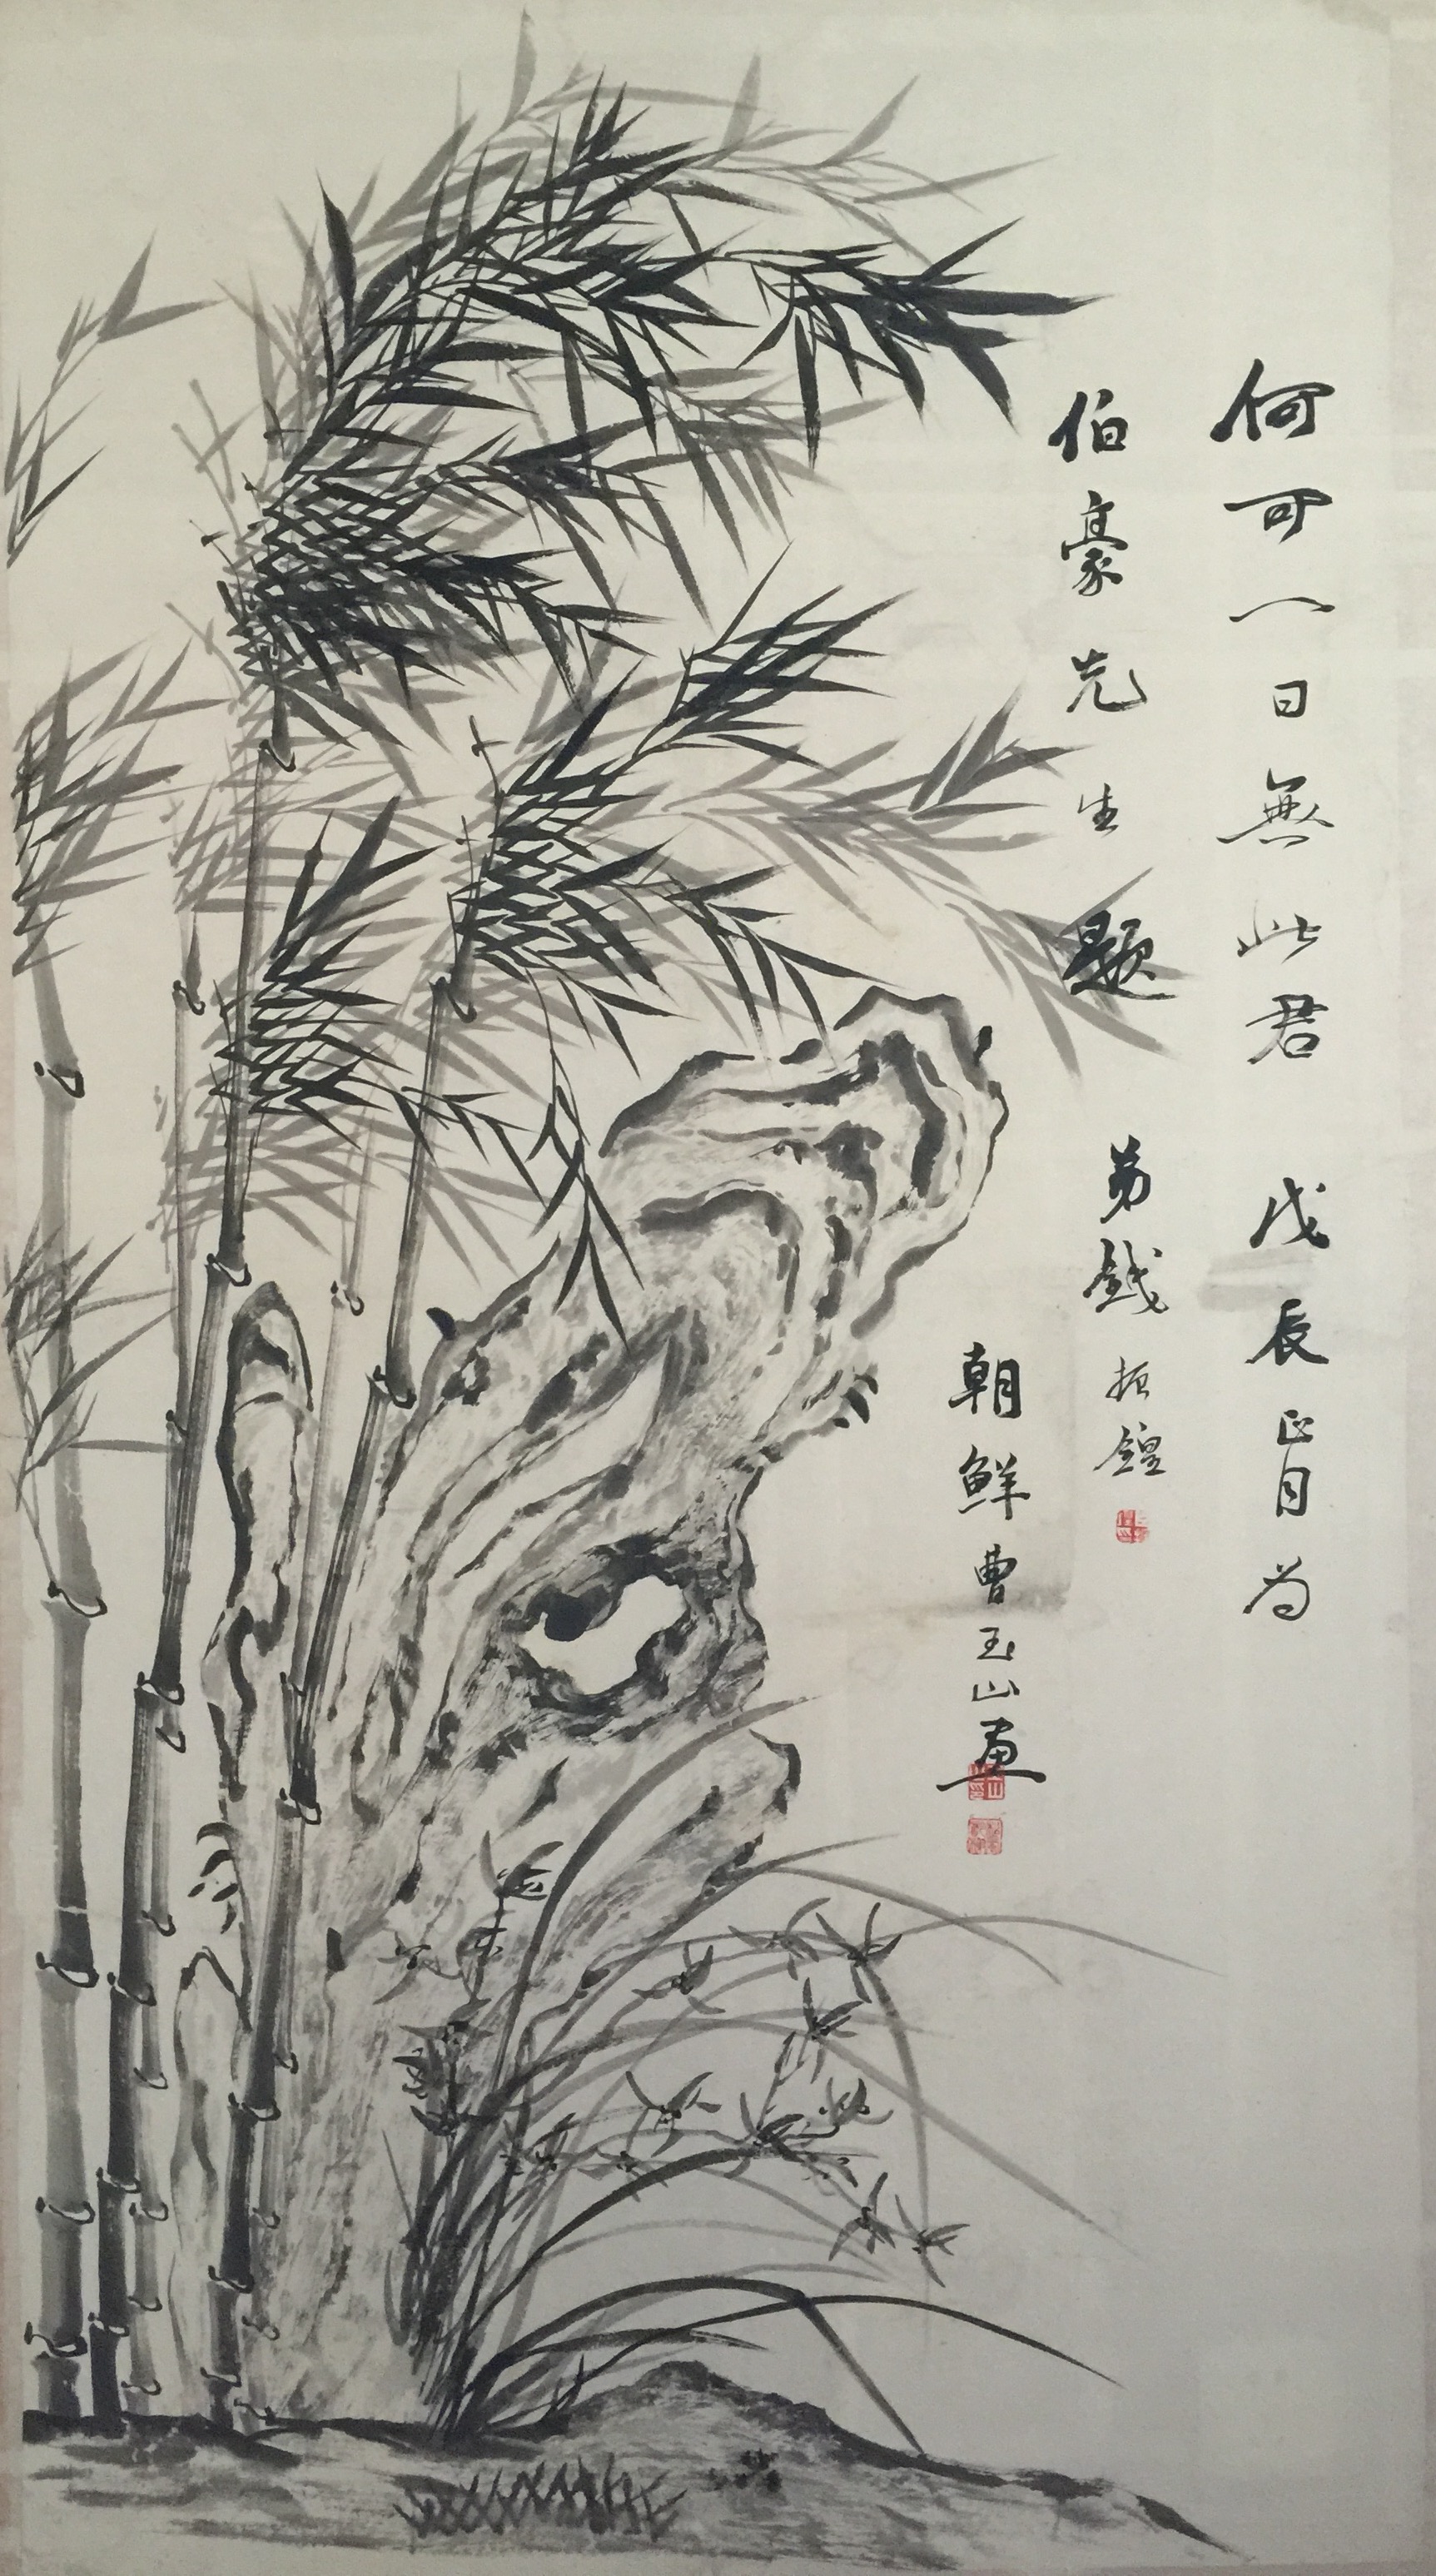 何可一日無此君 戊辰正月為
伯豪先生題 弟錢振鍠
朝鮮曹玉山畫